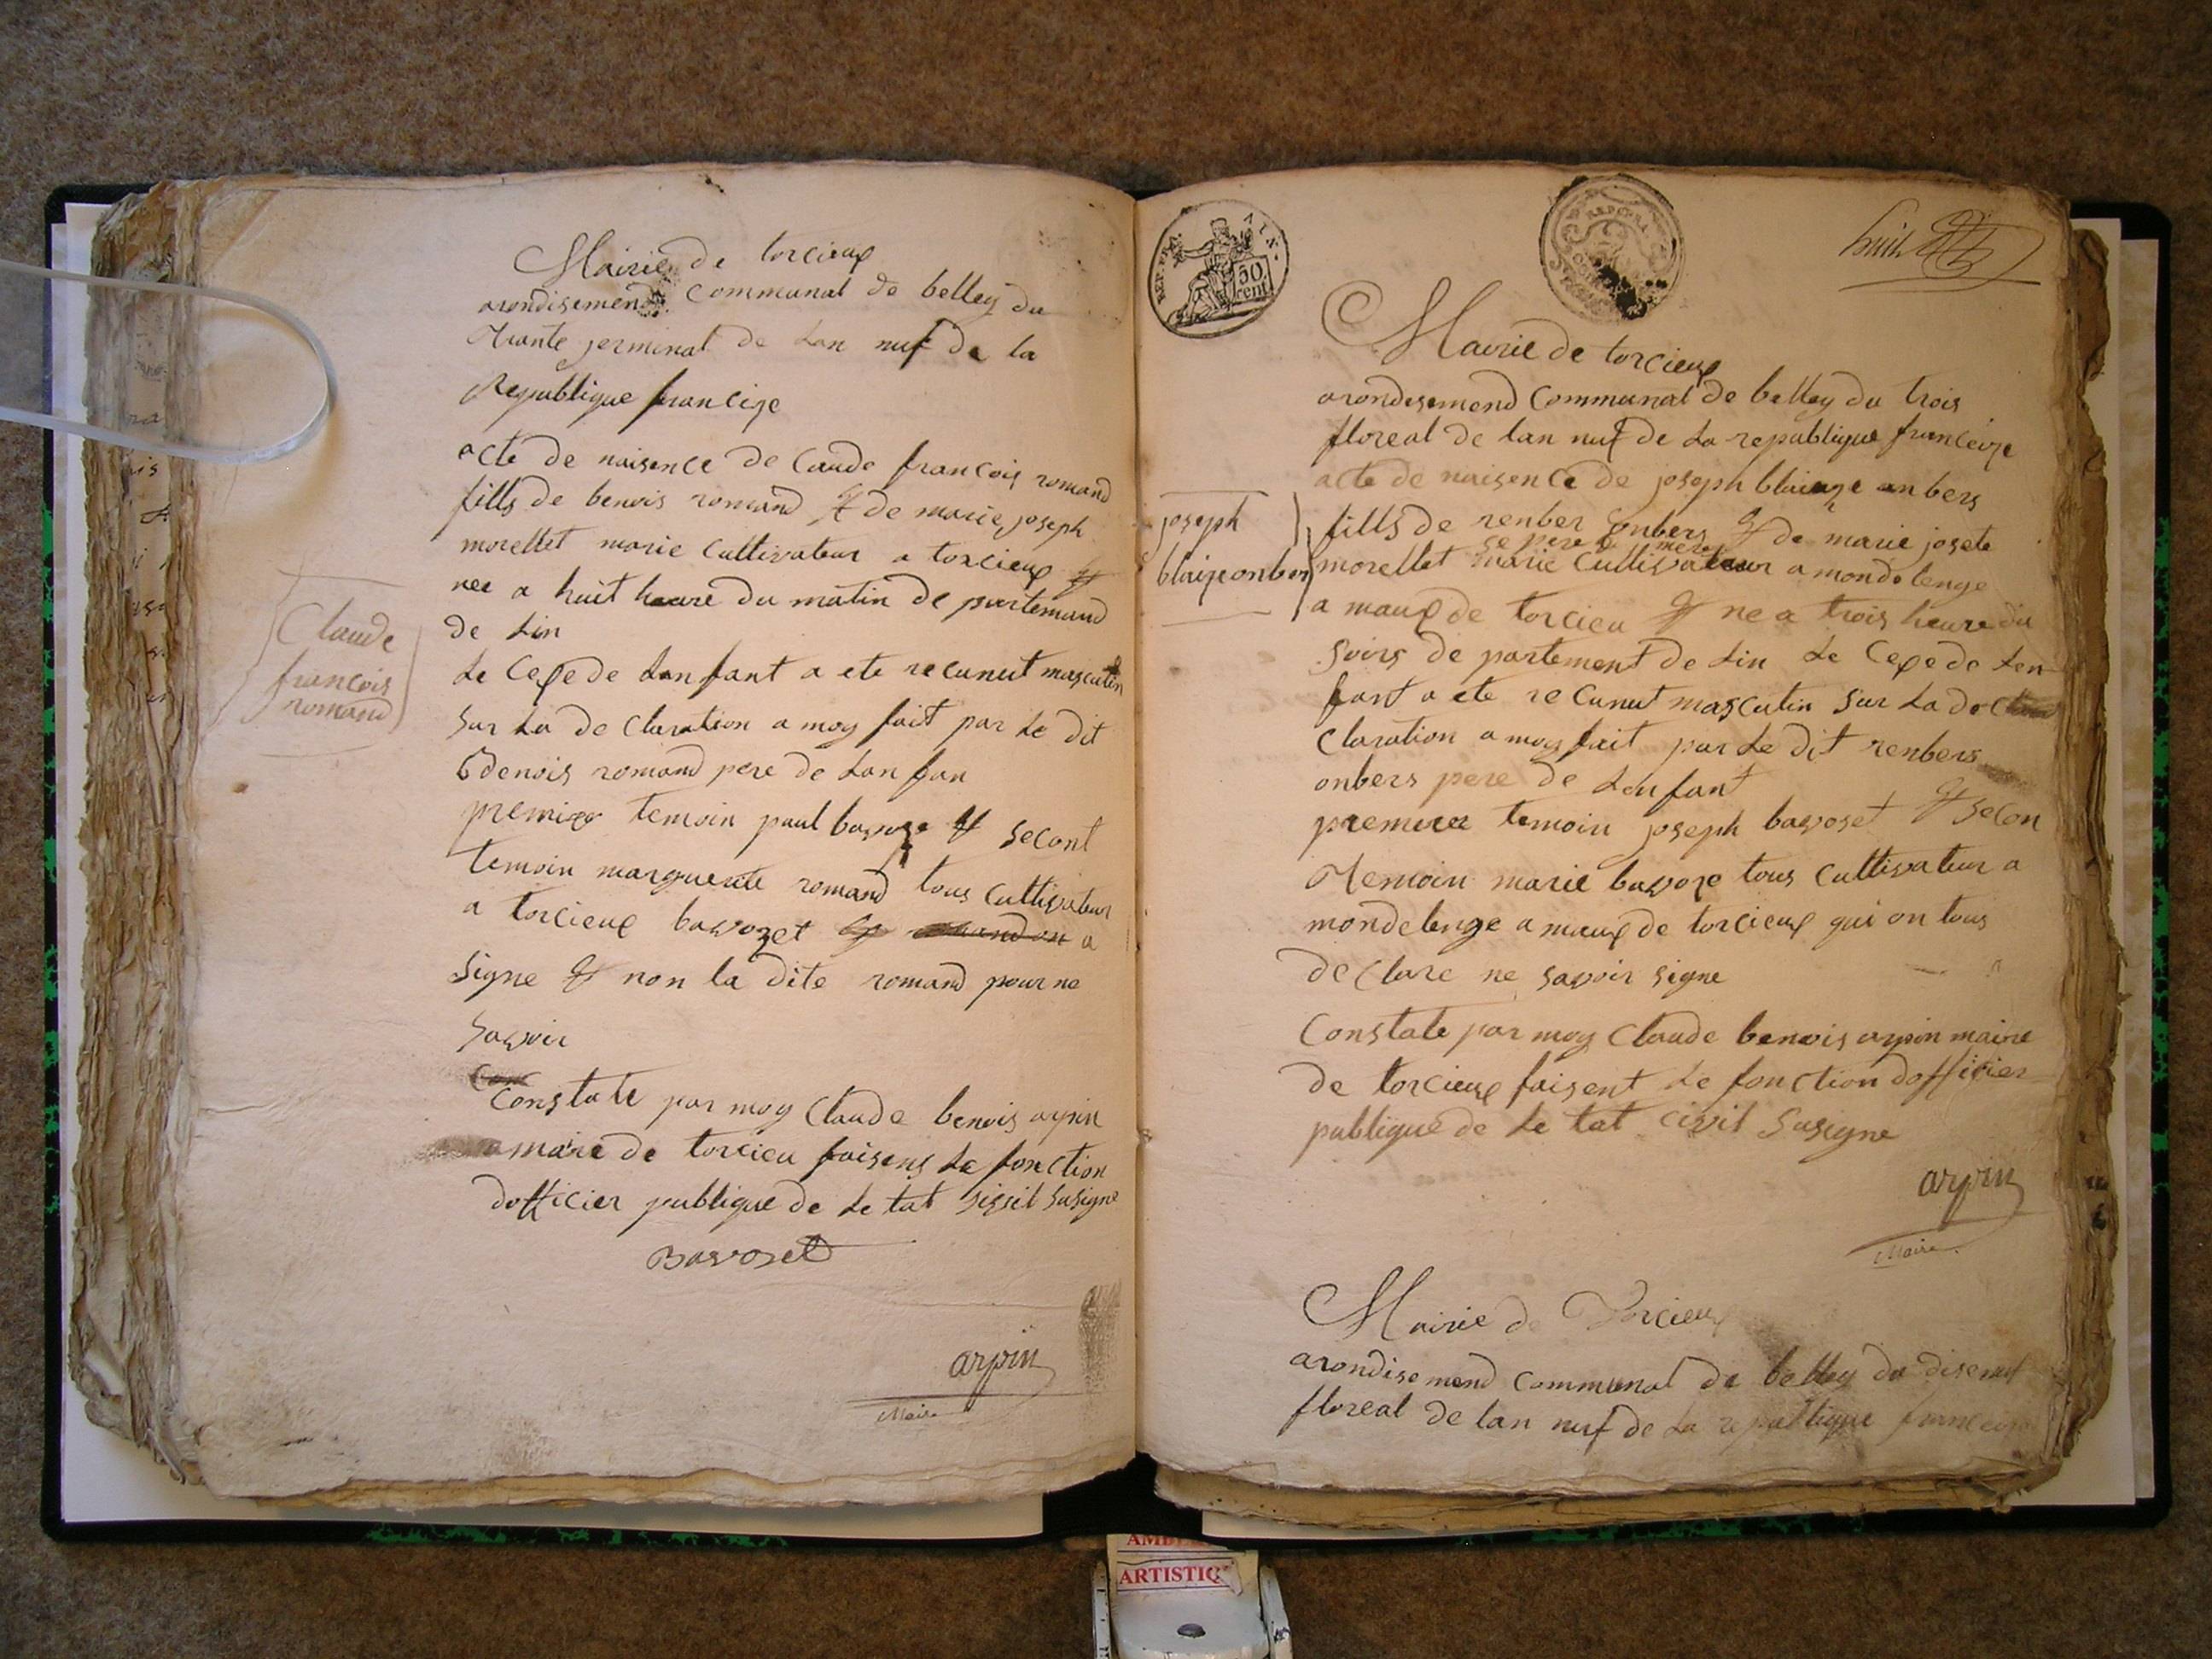 Mairie de torcieux
arondisemend Communal de belley du
trante jerminal de Lan nuf de la
Republique francize
acte de naisence de Claude francois romand
fills de benois romand & de marie joseph
morellet marie Cultivateur a torcieux &
nee a huit heure du matin de partemand
de Lin
Le Cexe de Lanfant a ete recunut masculin
Sur La de Claration a moy fait par Le dit
benois romand pere de Lan fan
premier temoin paul bavoze & Secont
temoin marguerite romand tous Cultivateur
a torcieux bavozet a
Signe & non la dite romand pour ne
Savoir
Constate par moy Claude benois arpin
maire de torcieu faisens Le fonction
dofficier publique de Le tat sissil Susigne
Bavozet
arpin
Maire
Claude
francois
romand
REP. FRA.
50
cent
huit
Mairie de torcieux
arondisemend Communal de belley du trois
floreal de lan nuf de La republique franceize
acte de naisence de joseph blaize onbers
fills de renber onbers & de marie josete
se pere & mere
morellet marie Cultivateur a mondelenge
a maux de torcieu & ne a trois heure du
Soirs de partement de Lin Le Cexe de Len
fant a ete re Cunut masculin Sur La de
Claration a moy fait par Le dit renbers
onbers pere de Lenfant
premier temoin joseph bavoset & Secon
temoin marie bavoze tous Cultivateur a
mondelenge a maux de torcieux qui on tous
de Clare ne savoir signe
Constate par moy Claude benois arpin maire
de torcieux faisent Le fonction dofficier
publique de Le tat civil Susigne
arpin
Maire
joseph
blaize onbers
Mairie de Torcieux
arondisemend Communal de belley du disenuf
floreal de lan nuf de La republique franceize
ARTISTIQ